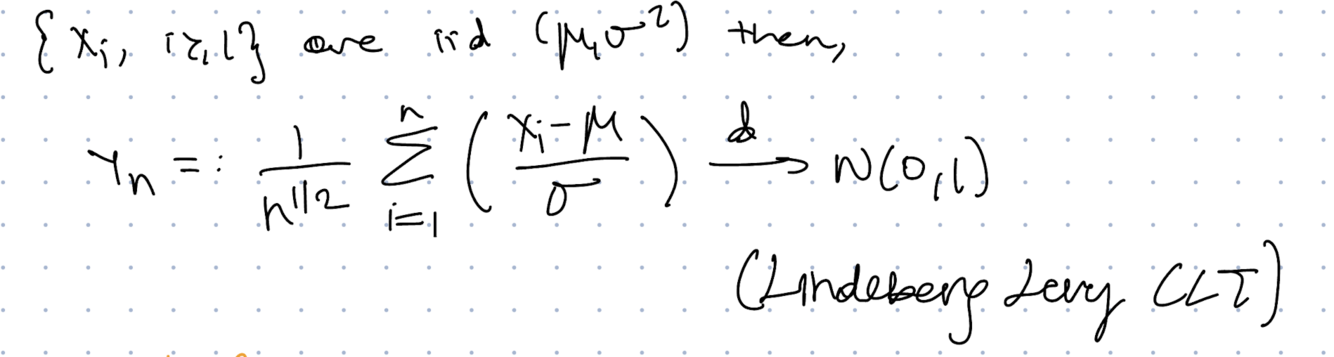 {X_i, i≥1} are iid (μ, σ²) then,
Y_n =: 1/n^{1/2} ∑_{i=1}^{n} ((X_i - μ)/σ) →^d N(0,1)
(Lindeberg Levy CLT)